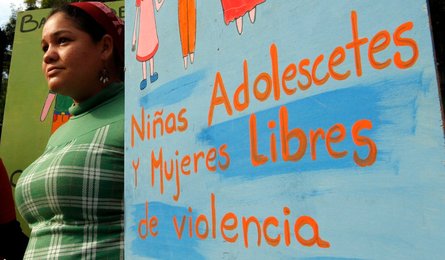 Niñas Adolescetes
Y Mujeres Libres
de violencia